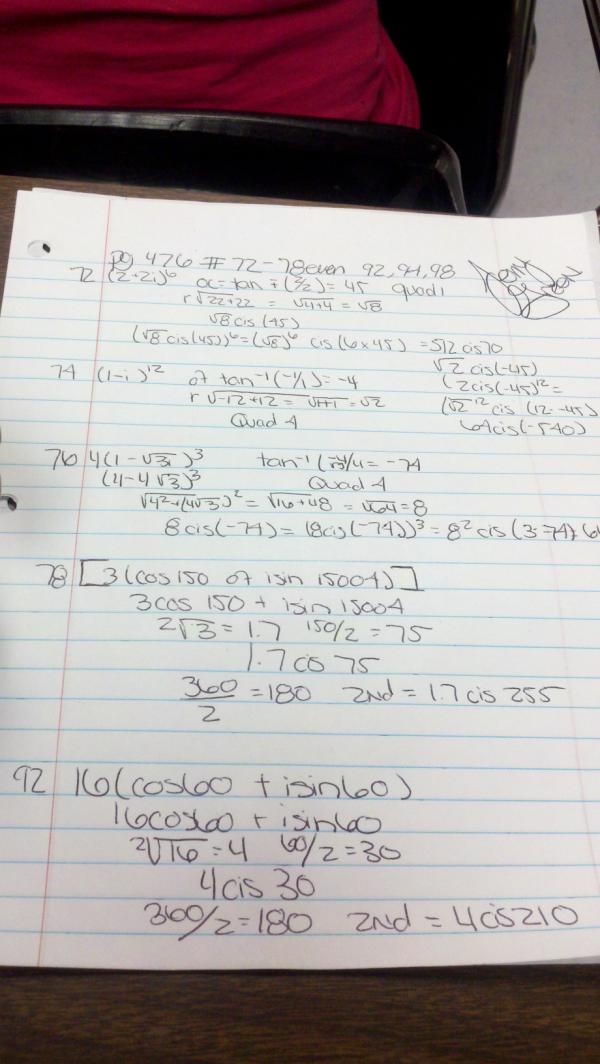 pg 476 # 72-78even 92,94,98
72 (2+2i)⁶ α=tan÷(2/2)=45 quad1
r√22+22 = √4+4 = √8
√8cis(45)
(√8cis(45))⁶=(√8)⁶ cis(6x45) =512cis70
74 (1-i)¹² of tan⁻¹(-1/1)=-4
√2cis(-45)
r√-12+12 = √1+1 = √2
(2cis(-45)¹²=
Quad 4
(√2¹²cis (12·-45)
64cis(-540)
76 4(1-√3i)³ = -74
(4-4√3)³ Quad 4
√4²+(4√3)² = √16+48 = √64=8
8cis(-74)=(8cis(-74))³=8²cis(3·-74)
78 [3(cos150 of isin 15004)]
3cos 150+isin15004
2√3=1.7 150/2=75
1.7cis 75
360/2 =180 2nd =1.7cis 255
92 16(cos60 + isin60)
16cos60+isin60
²√16=4 60/2=30
4cis30
360/2=180 2nd = 4cis210